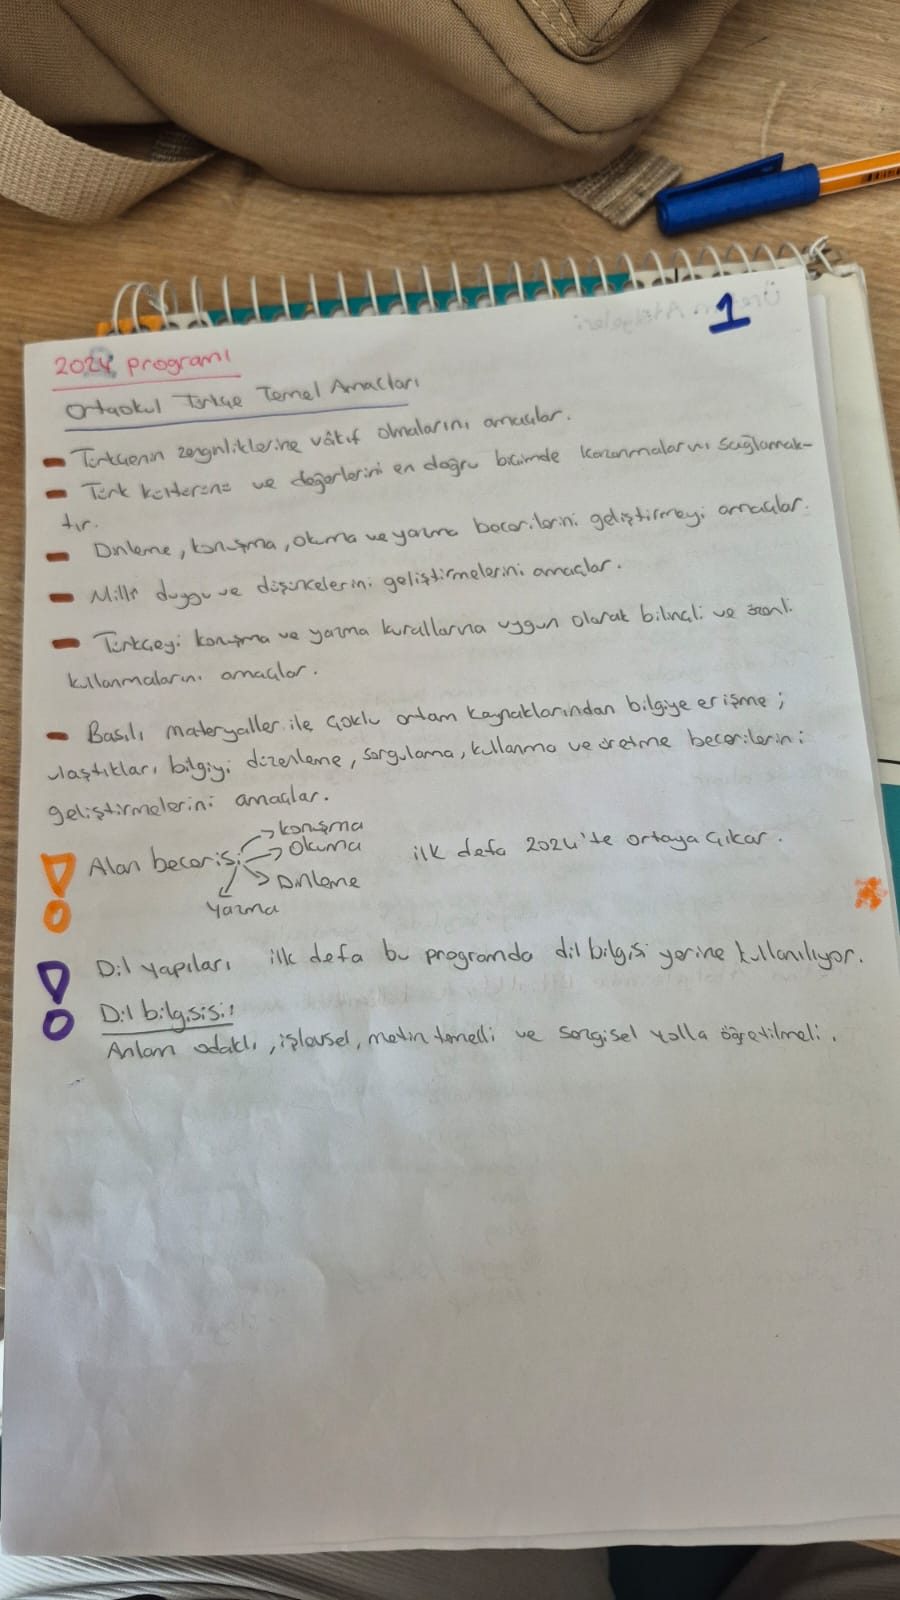 1
2024 programı
Ortaokul Türkçe Temel Amaçları
Türkçenin zenginliklerine vâkıf olmalarını amaçlar.
Türk kültürünü ve değerlerini en doğru biçimde kazanmalarını sağlamak-
tır.
Dinleme, konuşma, okuma ve yazma becerilerini geliştirmeyi amaçlar.
Millî duygu ve düşüncelerini geliştirmelerini amaçlar.
Türkçeyi konuşma ve yazma kurallarına uygun olarak bilinçli ve özenli
kullanmalarını amaçlar.
Basılı materyaller ile çoklu ortam kaynaklarından bilgiye erişme;
ulaştıkları bilgiyi düzenleme, sorgulama, kullanma ve üretme becerilerini
geliştirmelerini amaçlar.
Alan becerisi
konuşma
okuma
Dinleme
Yazma
ilk defa 2024'te ortaya çıkar.
Dil yapıları ilk defa bu programda dil bilgisi yerine kullanılıyor.
Dil bilgisisi:
Anlam odaklı, işlevsel, metin temelli ve sezgisel yolla öğretilmeli.